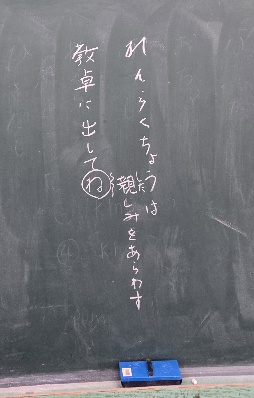 れんらくちょうは
親しみをあらわす
教卓に出してね